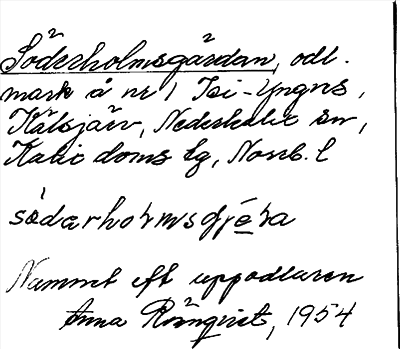 Söderholmsgärdan, odl.
mark å nr 1 Isi-Yngvs,
Kälsjärv, Nederkalix sn,
Kalix doms lg, Norrb. l
södarholmsgjéḷa
Namnet eft uppodlaren
Anna Rönqvist, 1954